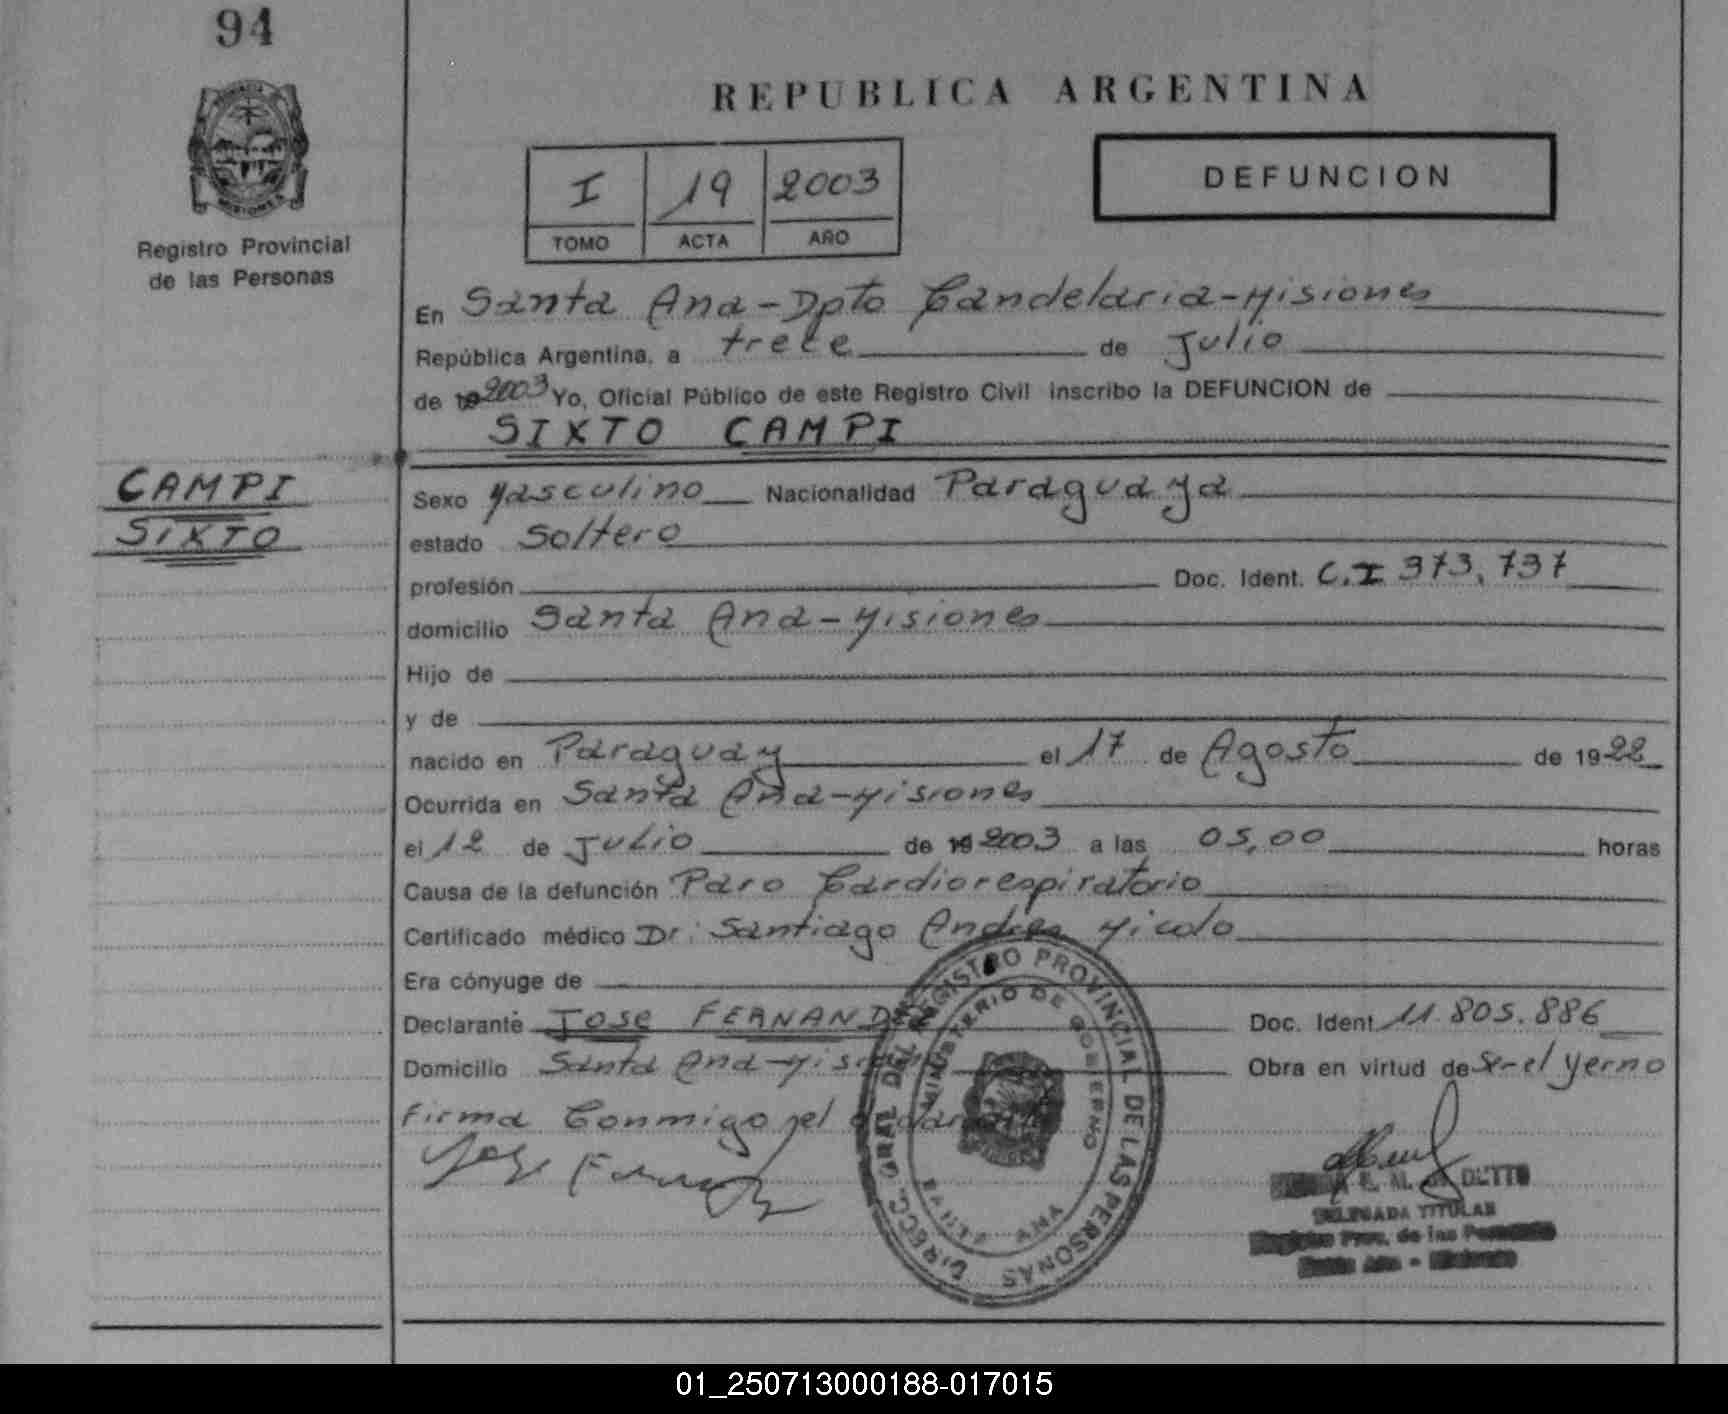 94
REPUBLICA ARGENTINA
I 19 2003
TOMO ACTA AÑO
DEFUNCION
Registro Provincial
de las Personas
En Santa Ana - Dpto Candelaria - Misiones
República Argentina, a trece de Julio
de 19 2003 Yo, Oficial Público de este Registro Civil inscribo la DEFUNCION de
SIXTO CAMPI
CAMPI
SIXTO
Sexo Masculino Nacionalidad Paraguaya
estado Soltero
profesión Doc. Ident. C.I 373.737
domicilio Santa Ana - Misiones
Hijo de
y de
nacido en Paraguay el 17 de Agosto de 1922
Ocurrida en Santa Ana - Misiones
el 12 de Julio de 19 2003 a las 05,00 horas
Causa de la defunción Paro Cardiorespiratorio
Certificado médico Dr: Santiago Andres
Era cónyuge de
Declarante JOSE FERNANDE
Doc. Ident 11.805.886
Domicilio Santa Ana - Misiones
Obra en virtud de Ser el Yerno
Firma Conmigo el declarante
Jose Fernandez
DIRECC. GRAL. DEL REGISTRO PROVINCIAL DE LAS PERSONAS
MINISTERIO DE GOBIERNO
SANTA ANA
DELEGADA TITULAR
Registro Prov. de las Personas
Santa Ana - Misiones
01_250713000188-017015